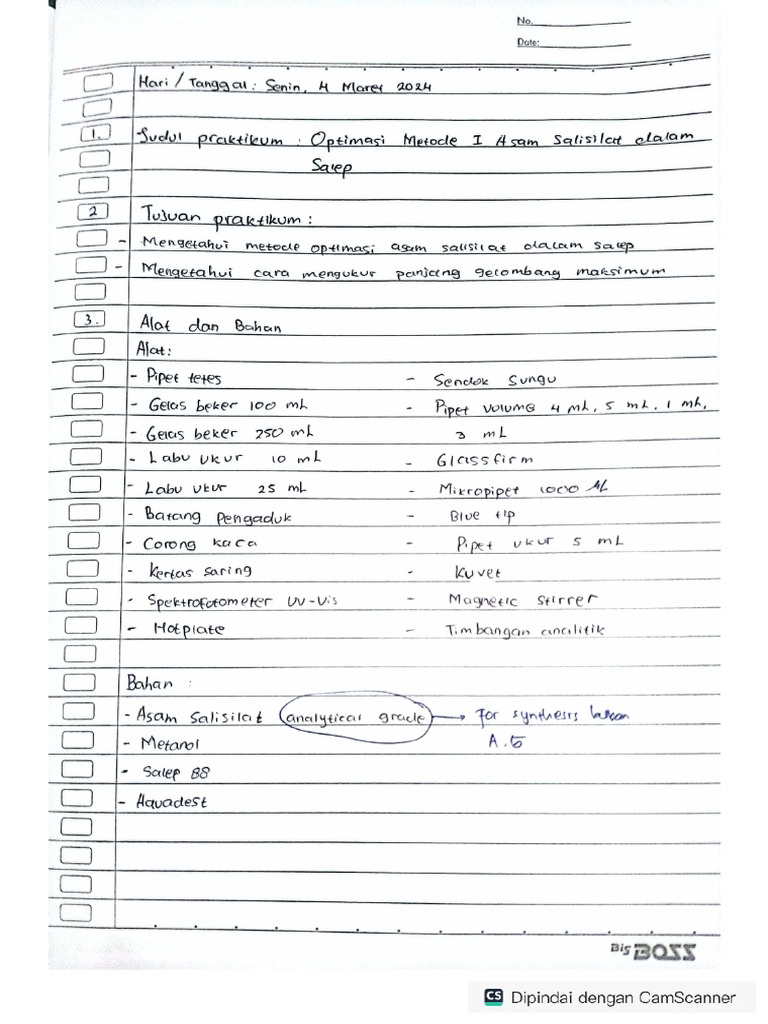 No.
Date:
Hari / Tanggal : Senin, 4 Maret 2024
1. Judul praktikum : Optimasi Metode I Asam Salisilat dalam
Salep
2 Tujuan praktikum :
- Mengetahui metode optimasi asam salisilat dalam salep
- Mengetahui cara mengukur panjang gelombang maksimum
3. Alat dan Bahan
Alat :
- Pipet tetes - Sendok Sungu
- Gelas beker 100 mL - Pipet volume 4 mL, 5 mL, 1 mL,
- Gelas beker 250 mL 3 mL
- Labu ukur 10 mL - Glassfirm
- Labu ukur 25 mL - Mikropipet 1000 µL
- Batang Pengaduk - Blue tip
- Corong kaca - Pipet ukur 5 mL
- Kertas saring - Kuvet
- Spektrofotometer UV-Vis - Magnetic Stirrer
- Hotplate - Timbangan analitik
Bahan :
- Asam Salisilat (analytical grade) → For synthesis bukan
- Metanol A.G
- Salep 88
- Aquadest
Big BOSS
CS Dipindai dengan CamScanner